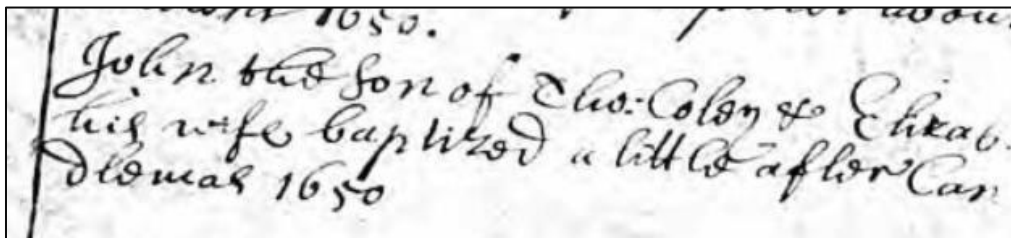 1650. about
John the son of Tho: Coley & Elizab.
his wife baptized a little after Can
dlemas 1650